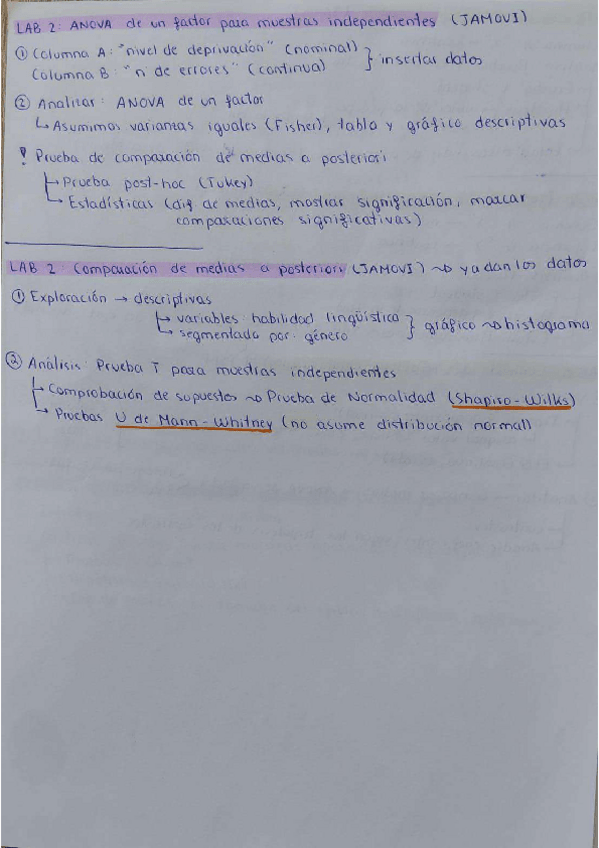 LAB 2: ANOVA de un factor para muestras independientes (JAMOVI)
① Columna A: "nivel de deprivación" (nominal)
Columna B: "n de errores" (continua) } insertar datos
② Analizar: ANOVA de un factor
↳ Asumimos varianzas iguales (Fisher), tabla y gráfico descriptivas
! Prueba de comparación de medias a posteriori
→ Prueba post-hoc (Tukey)
→ Estadísticas (dif de medias, mostrar significación, marcar
comparaciones significativas)
LAB 2: Comparación de medias a posteriori (JAMOVI) ~> ya dan los datos
① Exploración → descriptivas
↳ variables habilidad lingüística
↳ segmentado por género } gráfico ~> histograma
② Análisis: Prueba T para muestras independientes
→ Comprobación de supuestos ~> Prueba de Normalidad (Shapiro-Wilks)
→ Pruebas U de Mann-Whitney (no asume distribución normal)